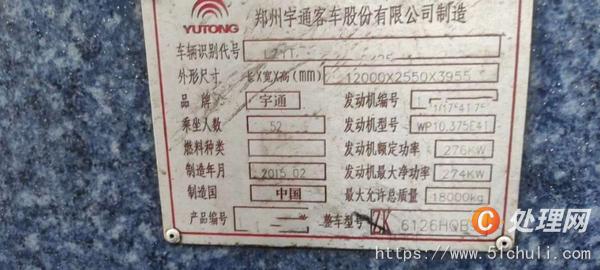 YUTONG 郑州宇通客车股份有限公司制造
车辆识别代号
外形尺寸 长X宽X高(mm) 12000X2550X3955
品牌 宇通 发动机编号
乘坐人数 52 发动机型号 WP10.375E41
燃料种类 发动机额定功率 276KW
制造年月 2015 02 发动机最大净功率 274KW
制造国 中国 最大允许总质量 18000kg
产品编号 整车型号 ZK 6126HQB
C处理网
https://www.51chuli.com/